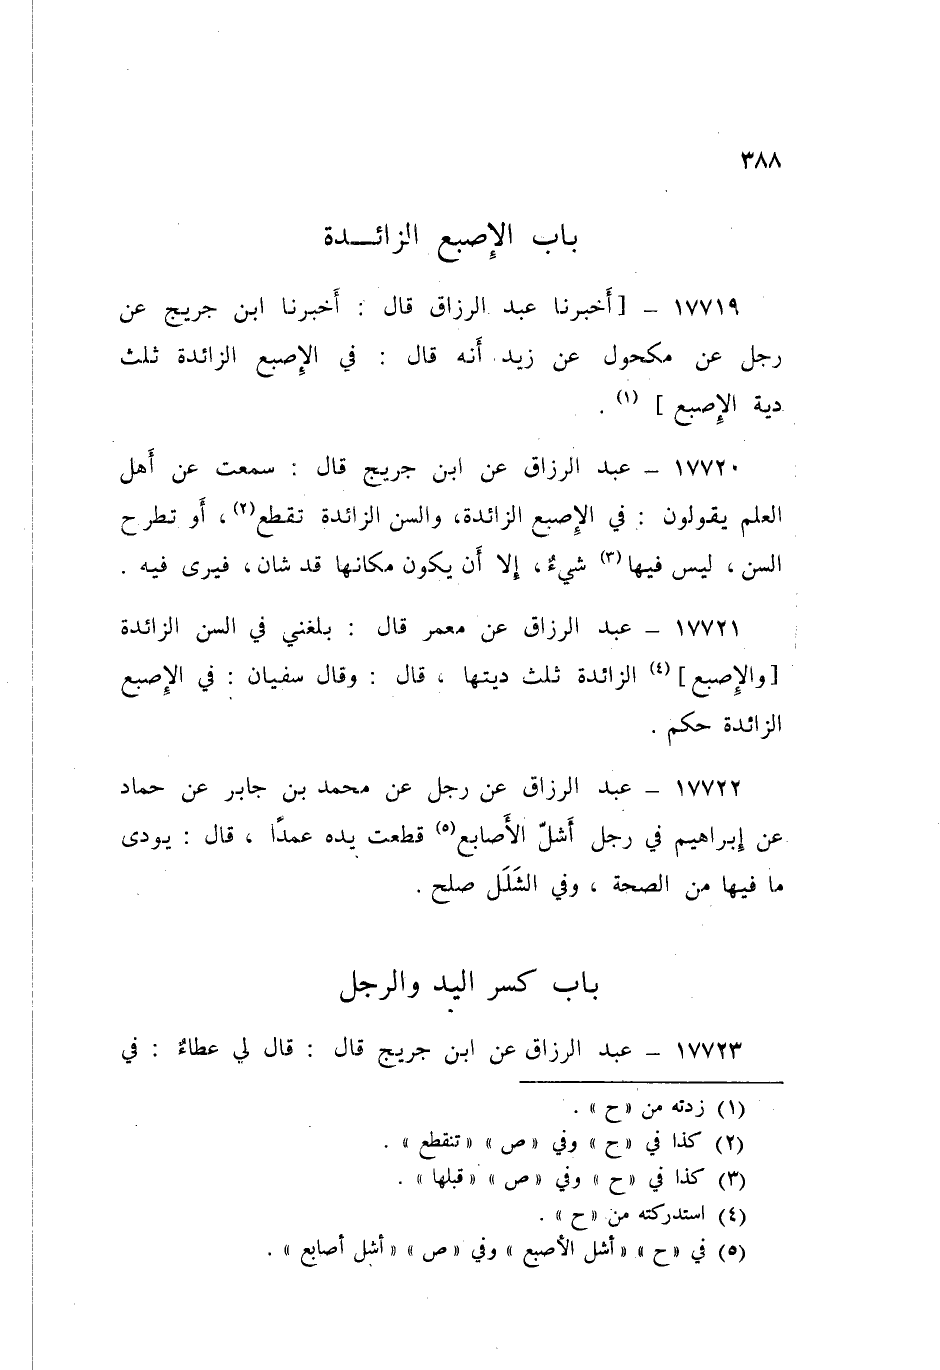 ٣٨٨
باب الإِصبع الزائـــدة
١٧٧١٩ – [أَخبرنا عبد الرزاق قال : أَخبرنا ابن جريج عن
رجل عن مكحول عن زيد أَنه قال : في الإِصبع الزائدة ثلث
دية الإِصبع ] (١) .
١٧٧٢٠ – عبد الرزاق عن ابن جريج قال : سمعت عن أَهل
العلم يقولون : في الإِصبع الزائدة، والسن الزائدة تقطع(٢)، أَو تطرح
السن ، ليس فيها(٣) شيءٌ، إِلا أَن يكون مكانها قد شان، فيرى فيه .
١٧٧٢١ – عبد الرزاق عن معمر قال : بلغني في السن الزائدة
[والإِصبع](٤) الزائدة ثلث ديتها ، قال : وقال سفيان : في الإِصبع
الزائدة حكم .
١٧٧٢٢ – عبد الرزاق عن رجل عن محمد بن جابر عن حماد
عن إِبراهيم في رجل أَشلّ الأَصابع(٥) قطعت يده عمدًا ، قال : يودى
ما فيها من الصحة ، وفي الشَلَل صلح .
باب كسر اليد والرجل
١٧٧٢٣ – عبد الرزاق عن ابن جريج قال : قال لي عطاءٌ : في
(١) زدته من «ح» .
(٢) كذا في «ح» وفي «ص» «تنقطع» .
(٣) كذا في «ح» وفي «ص» «قبلها» .
(٤) استدركته من «ح» .
(٥) في «ح» «أشل الأصبع» وفي «ص» «أشل أصابع» .